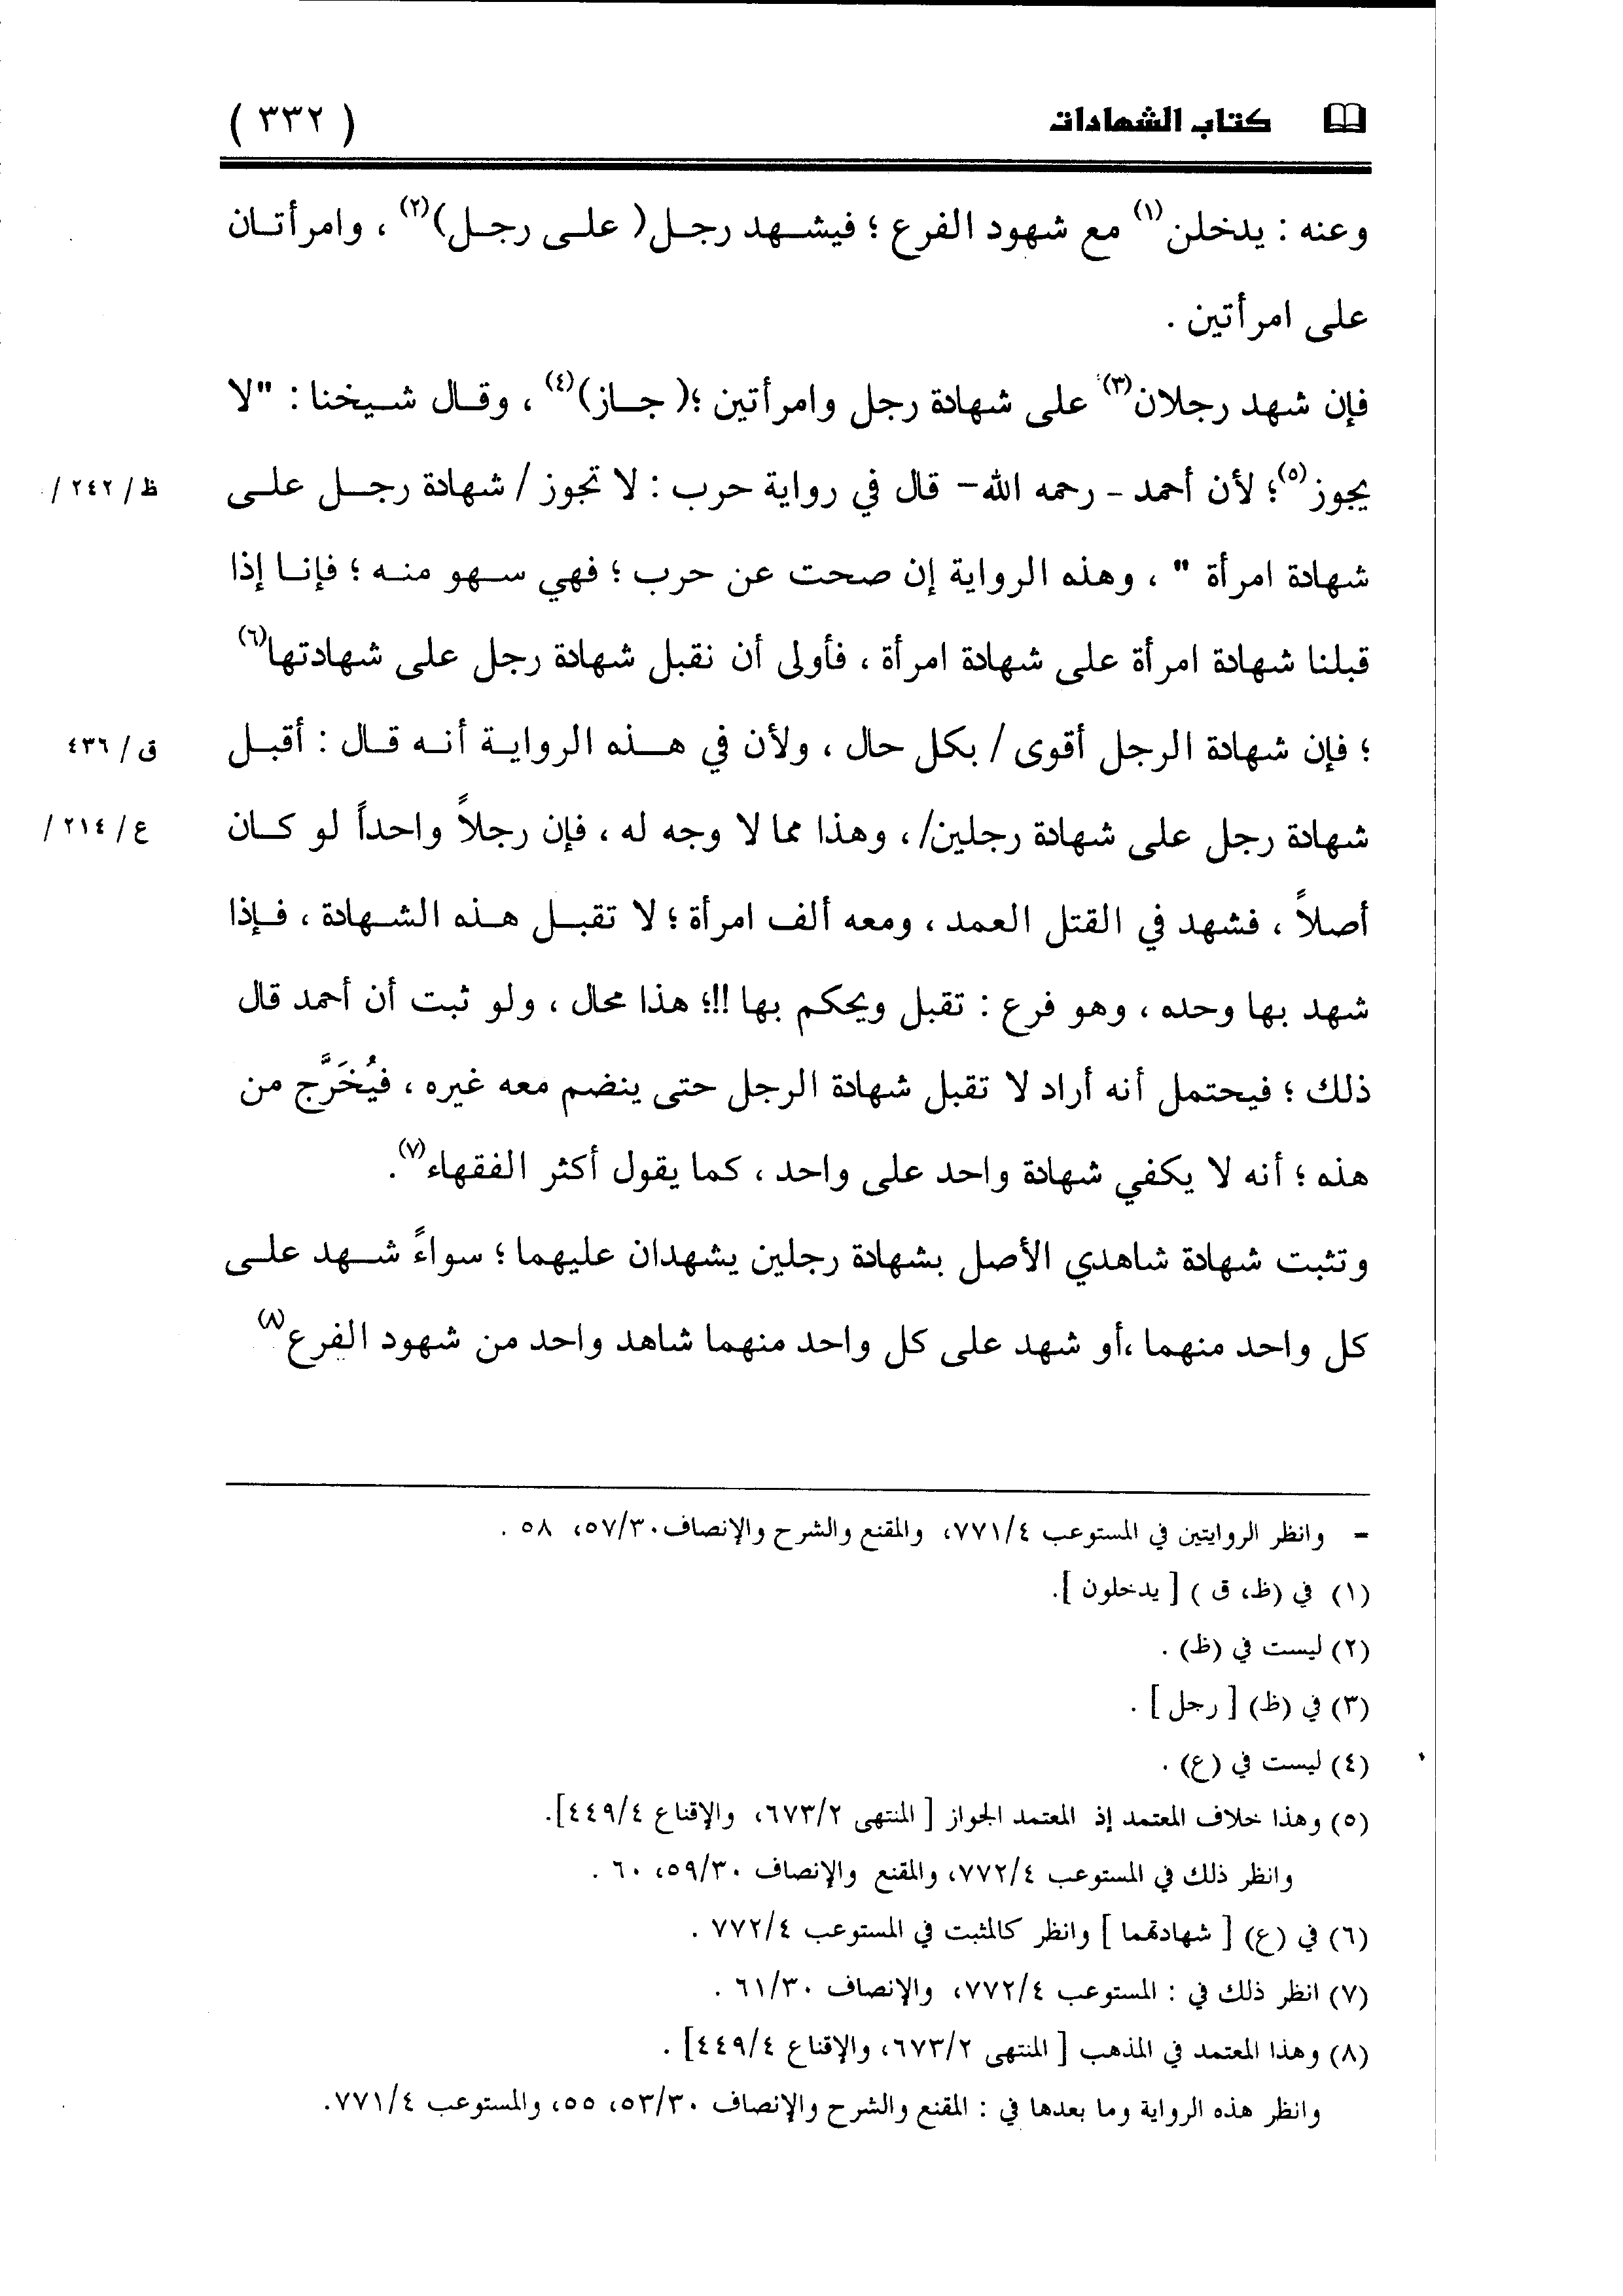 كتاب الشهادات ( ٣٣٢ )
وعنه : يدخلن(١) مع شهود الفرع ؛ فيشهد رجل( على رجل)(٢) ، وامرأتان
على امرأتين .
فإن شهد رجلان(٣) على شهادة رجل وامرأتين ؛( جاز)(٤) ، وقال شيخنا : "لا
يجوز(٥)؛ لأن أحمد - رحمه الله- قال في رواية حرب : لا تجوز / شهادة رجل على
ظ/ ٢٤٢ /
شهادة امرأة " ، وهذه الرواية إن صحت عن حرب ؛ فهي سهو منه ؛ فإنا إذا
قبلنا شهادة امرأة على شهادة امرأة ، فأولى أن نقبل شهادة رجل على شهادتها(٦)
؛ فإن شهادة الرجل أقوى / بكل حال ، ولأن في هذه الرواية أنه قال : أقبل
ق / ٤٣٦
شهادة رجل على شهادة رجلين/ ، وهذا مما لا وجه له ، فإن رجلاً واحداً لو كان
ع / ٢١٤ /
أصلاً ، فشهد في القتل العمد ، ومعه ألف امرأة ؛ لا تقبل هذه الشهادة ، فإذا
شهد بها وحده ، وهو فرع : تقبل ويحكم بها !!؛ هذا محال ، ولو ثبت أن أحمد قال
ذلك ؛ فيحتمل أنه أراد لا تقبل شهادة الرجل حتى ينضم معه غيره ، فيُخَرَّج من
هذه ؛ أنه لا يكفي شهادة واحد على واحد ، كما يقول أكثر الفقهاء(٧).
وتثبت شهادة شاهدي الأصل بشهادة رجلين يشهدان عليهما ؛ سواءً شهد على
كل واحد منهما ،أو شهد على كل واحد منهما شاهد واحد من شهود الفرع(٨)
= وانظر الروايتين في المستوعب ٧٧١/٤، والمقنع والشرح والإنصاف٥٧/٣٠، ٥٨ .
(١) في (ظ، ق ) [ يدخلون ].
(٢) ليست في (ظ) .
(٣) في (ظ) [ رجل ] .
(٤) ليست في (ع) .
(٥) وهذا خلاف المعتمد إذ المعتمد الجواز [ المنتهى ٦٧٣/٢، والإقناع ٤٤٩/٤].
وانظر ذلك في المستوعب ٧٧٢/٤، والمقنع والإنصاف ٥٩/٣٠، ٦٠ .
(٦) في (ع) [ شهادتهما ] وانظر كالمثبت في المستوعب ٧٧٢/٤ .
(٧) انظر ذلك في : المستوعب ٧٧٢/٤، والإنصاف ٦١/٣٠ .
(٨) وهذا المعتمد في المذهب [ المنتهى ٦٧٣/٢، والإقناع ٤٤٩/٤] .
وانظر هذه الرواية وما بعدها في : المقنع والشرح والإنصاف ٥٣/٣٠، ٥٥، والمستوعب ٧٧١/٤.